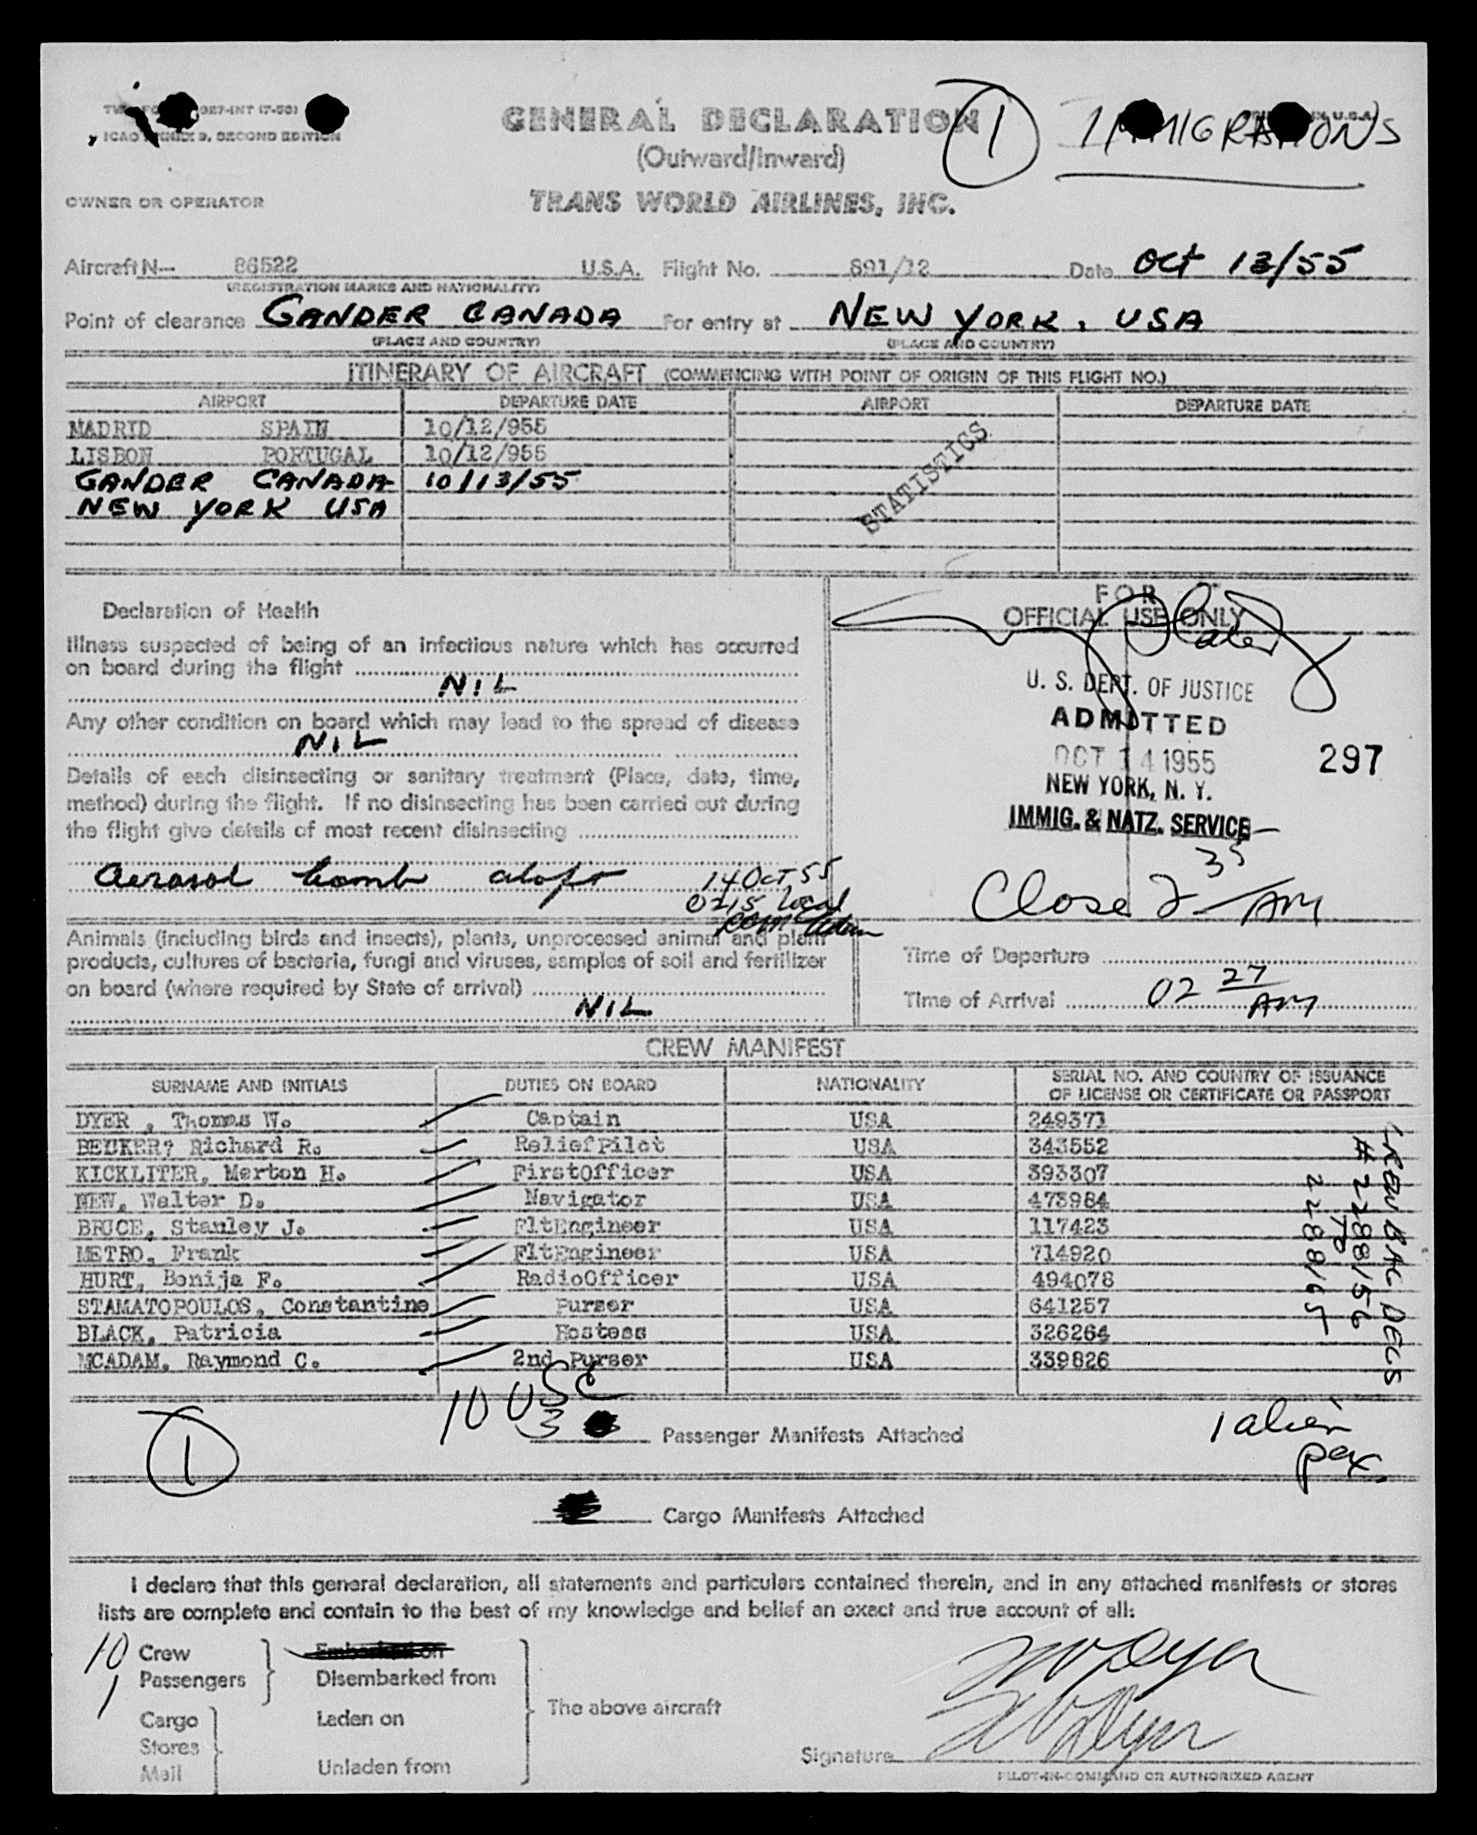 GENERAL DECLARATION
(Outward/Inward)
1
IMMIGRATIONS
ICAO ANNEX 9, SECOND EDITION
OWNER OR OPERATOR
TRANS WORLD AIRLINES, INC.
Aircraft N— 86522 U.S.A. Flight No. 891/12 Date Oct 13/55
(REGISTRATION MARKS AND NATIONALITY)
Point of clearance GANDER CANADA For entry at NEW YORK, USA
(PLACE AND COUNTRY) (PLACE AND COUNTRY)
ITINERARY OF AIRCRAFT (COMMENCING WITH POINT OF ORIGIN OF THIS FLIGHT NO.)
AIRPORT DEPARTURE DATE AIRPORT DEPARTURE DATE
MADRID SPAIN 10/12/955
LISBON PORTUGAL 10/12/955
GANDER CANADA 10/13/55
NEW YORK USA
STATISTICS
Declaration of Health
Illness suspected of being of an infectious nature which has occurred
on board during the flight
NIL
Any other condition on board which may lead to the spread of disease
NIL
Details of each disinsecting or sanitary treatment (Place, date, time,
method) during the flight. If no disinsecting has been carried out during
the flight give details of most recent disinsecting
aerosol bomb aloft 14 OCT 55
0215 local
FOR
OFFICIAL USE ONLY
U. S. DEPT. OF JUSTICE
ADMITTED
OCT 14 1955 297
NEW YORK, N. Y.
IMMIG. & NATZ. SERVICE
Close 2 35 AM
Animals (including birds and insects), plants, unprocessed animal and plant
products, cultures of bacteria, fungi and viruses, samples of soil and fertilizer
on board (where required by State of arrival)
NIL
Time of Departure
Time of Arrival 02 27 AM
CREW MANIFEST
SURNAME AND INITIALS DUTIES ON BOARD NATIONALITY SERIAL NO. AND COUNTRY OF ISSUANCE
OF LICENSE OR CERTIFICATE OR PASSPORT
DYER , Thomas W. Captain USA 249371
BEUKER? Richard R. ReliefPilot USA 343552
KICKLITER, Merton H. FirstOfficer USA 393307
NEW, Walter D. Navigator USA 473984
BRUCE, Stanley J. FltEngineer USA 117423
METRO, Frank FltEngineer USA 714920
HURT, Bonija F. RadioOfficer USA 494078
STAMATOPOULOS, Constantine Purser USA 641257
BLACK, Patricia Hostess USA 326264
MCADAM, Raymond C. 2nd Purser USA 339826
CREW BAG DECS
# 2288156
TO
2288165
10 USC
1
3 Passenger Manifests Attached
1 alien
pax.
Cargo Manifests Attached
I declare that this general declaration, all statements and particulars contained therein, and in any attached manifests or stores
lists are complete and contain to the best of my knowledge and belief an exact and true account of all:
10 Crew Embarked on
1 Passengers Disembarked from
The above aircraft
Cargo Laden on
Stores
Mail Unladen from
TW Dyer
TW Dyer
Signature
PILOT-IN-COMMAND OR AUTHORIZED AGENT